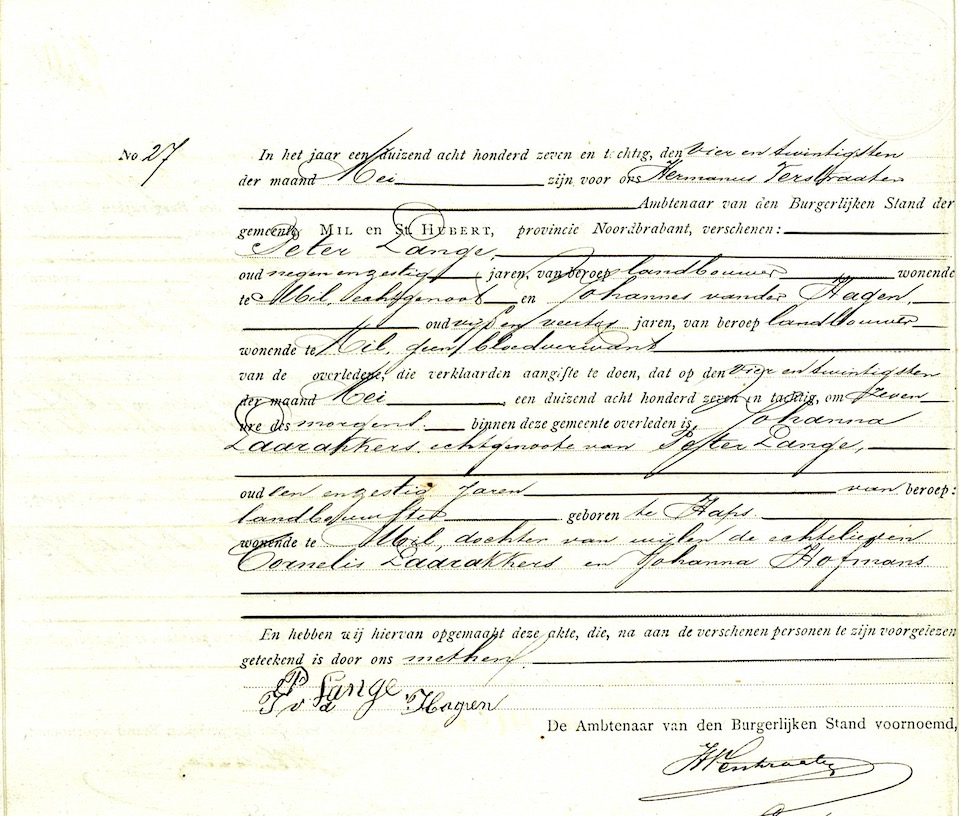 No 27
In het jaar een duizend acht honderd zeven en tachtig, den vier en twintigsten
der maand Mei zijn voor ons Hermanus Verstraaten
Ambtenaar van den Burgerlijken Stand der
gemeente MIL en St. HUBERT, provincie Noordbrabant, verschenen:
Peter Lange,
oud negen en zestig jaren, van beroep landbouwer wonende
te Mil echtgenoot en Johannes van der Hagen,
oud vijf en veertig jaren, van beroep landbouwer
wonende te Mil, geen bloedverwant
van de overledene, die verklaarden aangifte te doen, dat op den vier en twintigsten
der maand Mei, een duizend acht honderd zeven en tachtig, om zeven
ure des morgens binnen deze gemeente overleden is Johanna
Laarakkers echtgenoote van Peter Lange,
oud een en zestig jaren van beroep:
landbouwster geboren te Haps
wonende te Mil, dochter van wijlen de echtelieden
Cornelis Laarakkers en Johanna Hofmans
En hebben wij hiervan opgemaakt deze akte, die, na aan de verschenen personen te zijn voorgelezen
geteekend is door ons met hen
P Lange
J v d Hagen
De Ambtenaar van den Burgerlijken Stand voornoemd,
HVerstraaten